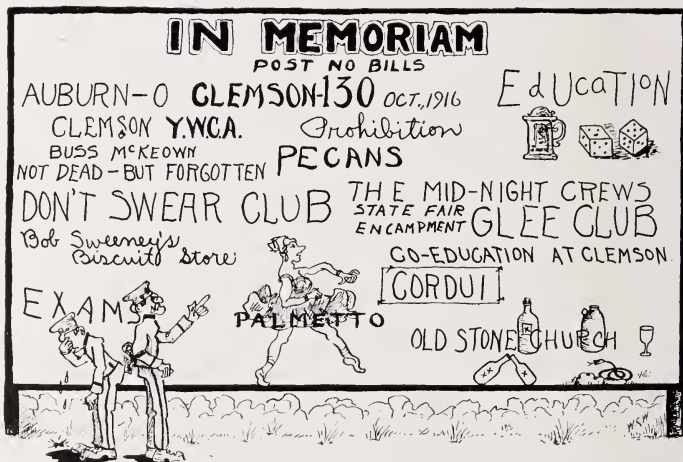 IN MEMORIAM
POST NO BILLS
AUBURN-0 CLEMSON-130 OCT., 1916
EdUCaTION
CLEMSON Y.W.C.A. Prohibition
BUSS McKEOWN
NOT DEAD - BUT FORGOTTEN
PECANS
DON'T SWEAR CLUB
THE MID-NIGHT CREWS
STATE FAIR
ENCAMPMENT
GLEE CLUB
Bob Sweeney's
Biscuit Store
CO-EDUCATION AT CLEMSON
CORDUI
EXAMS
PALMETTO
OLD STONE CHURCH